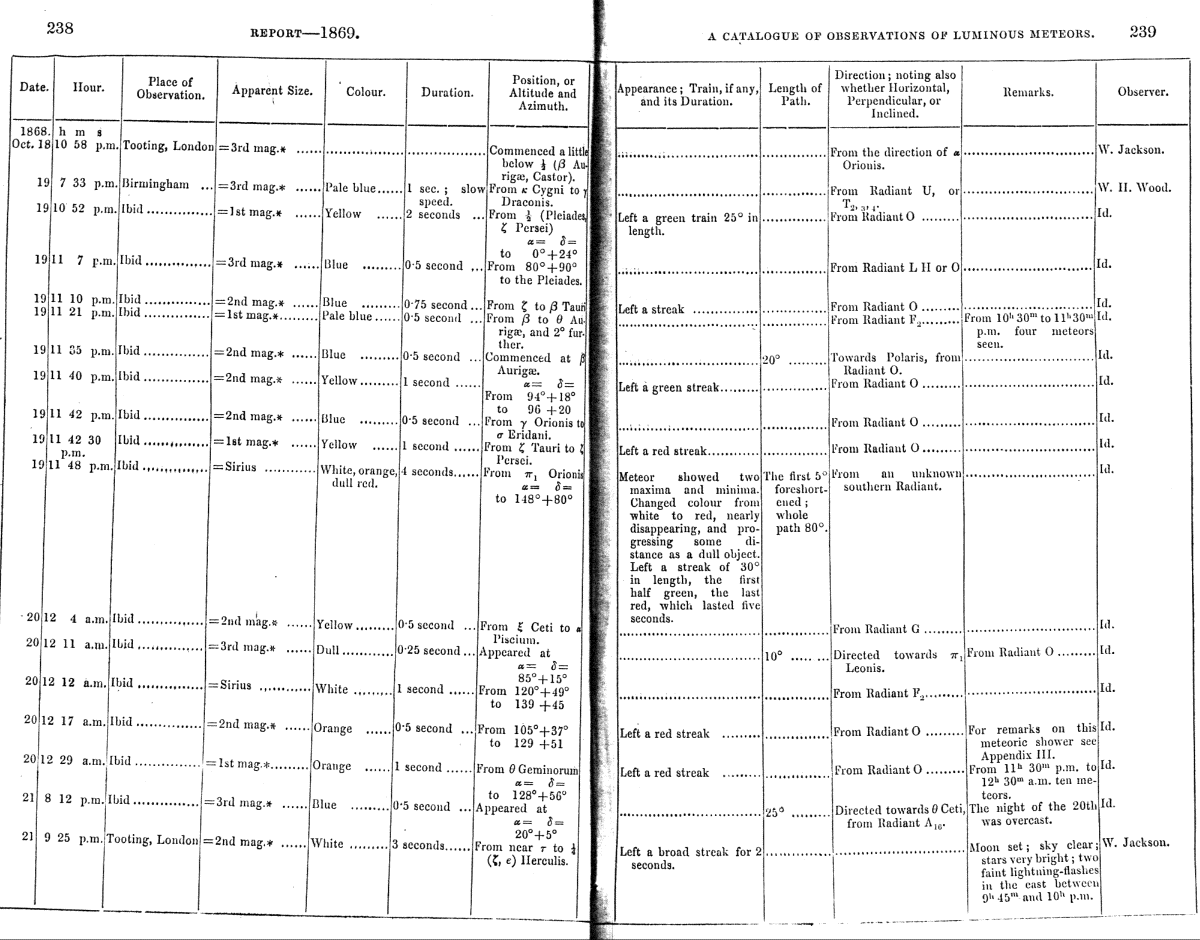 238
REPORT—1869.
Date. Hour. Place of Observation. Apparent Size. Colour. Duration. Position, or Altitude and Azimuth.
1868. h m s
Oct. 18 10 58 p.m. Tooting, London =3rd mag.* ...... .................... .................... Commenced a little
below ½ (β Au-
rigæ, Castor).
19 7 33 p.m. Birmingham ... =3rd mag.* ...... Pale blue...... 1 sec. ; slow From κ Cygni to γ
speed. Draconis.
19 10 52 p.m. Ibid ............... =1st mag.* ...... Yellow ...... 2 seconds ... From ½ (Pleiades,
ζ Persei)
α= δ=
to 0°+24°
19 11 7 p.m. Ibid ............... =3rd mag.* ...... Blue ......... 0·5 second ... From 80°+90°
to the Pleiades.
19 11 10 p.m. Ibid ............... =2nd mag.* ...... Blue ......... 0·75 second ... From ζ to β Tauri
19 11 21 p.m. Ibid ............... =1st mag.*......... Pale blue ...... 0·5 second ... From β to θ Au-
rigæ, and 2° fur-
ther.
19 11 35 p.m. Ibid ............... =2nd mag.* ...... Blue ......... 0·5 second ... Commenced at β
Aurigæ.
α= δ=
19 11 40 p.m. Ibid ............... =2nd mag.* ...... Yellow......... 1 second ...... From 94°+18°
to 96 +20
19 11 42 p.m. Ibid ............... =2nd mag.* ...... Blue ......... 0·5 second ... From γ Orionis to
σ Eridani.
19 11 42 30 Ibid ............... =1st mag.* ...... Yellow ...... 1 second ...... From ζ Tauri to ζ
p.m. Persei.
19 11 48 p.m. Ibid ............... =Sirius ............ White, orange, 4 seconds...... From π₁ Orionis
dull red. α= δ=
to 148°+80°
20 12 4 a.m. Ibid ............... =2nd mag.* ...... Yellow ......... 0·5 second ... From ξ Ceti to α
Piscium.
20 12 11 a.m. Ibid ............... =3rd mag.* ...... Dull ............ 0·25 second ... Appeared at
α= δ=
85°+15°
20 12 12 a.m. Ibid ............... =Sirius ............ White ......... 1 second ...... From 120°+49°
to 139 +45
20 12 17 a.m. Ibid ............... =2nd mag.* ...... Orange ...... 0·5 second ... From 105°+37°
to 129 +51
20 12 29 a.m. Ibid ............... =1st mag.*......... Orange ...... 1 second ...... From θ Geminorum
α= δ=
to 128°+56°
21 8 12 p.m. Ibid ............... =3rd mag.* ...... Blue ......... 0·5 second ... Appeared at
α= δ=
20°+5°
21 9 25 p.m. Tooting, London =2nd mag.* ...... White ......... 3 seconds...... From near τ to
(ζ, e) Herculis.
A CATALOGUE OF OBSERVATIONS OF LUMINOUS METEORS. 239
Appearance ; Train, if any, and its Duration. Length of Path. Direction ; noting also whether Horizontal, Perpendicular, or Inclined. Remarks. Observer.
.................................... ............... From the direction of α ................................. W. Jackson.
Orionis.
.................................... ............... From Radiant U, or ................................. W. H. Wood.
T₂, ₃, ₄.
Left a green train 25° in ............... From Radiant O ......... ................................. Id.
length.
.................................... ............... From Radiant L H or O ................................. Id.
Left a streak ............... ............... From Radiant O ......... ................................. Id.
.................................... ............... From Radiant F₂......... From 10ʰ 30ᵐ to 11ʰ 30ᵐ Id.
p.m. four meteors
seen.
.................................... 20° ......... Towards Polaris, from ................................. Id.
Radiant O.
Left a green streak......... ............... From Radiant O ......... ................................. Id.
.................................... ............... From Radiant O ......... ................................. Id.
Left a red streak............ ............... From Radiant O ......... ................................. Id.
Meteor showed two The first 5° From an unknown ................................. Id.
maxima and minima. foreshort- southern Radiant.
Changed colour from ened ;
white to red, nearly whole
disappearing, and pro- path 80°.
gressing some di-
stance as a dull object.
Left a streak of 30°
in length, the first
half green, the last
red, which lasted five
seconds.
.................................... ............... From Radiant G ......... ................................. Id.
.................................... 10° ..... ... Directed towards π₁ From Radiant O ......... Id.
Leonis.
.................................... ............... From Radiant F₂......... ................................. Id.
Left a red streak ......... ............... From Radiant O ......... For remarks on this Id.
meteoric shower see
Appendix III.
Left a red streak ......... ............... From Radiant O ......... From 11ʰ 30ᵐ p.m. to Id.
12ʰ 30ᵐ a.m. ten me-
teors.
.................................... 25° ......... Directed towards θ Ceti, The night of the 20th Id.
from Radiant A₁₆. was overcast.
Left a broad streak for 2 ............... ........................ Moon set ; sky clear ; W. Jackson.
seconds. stars very bright ; two
faint lightning-flashes
in the east between
9ʰ 45ᵐ and 10ʰ p.m.